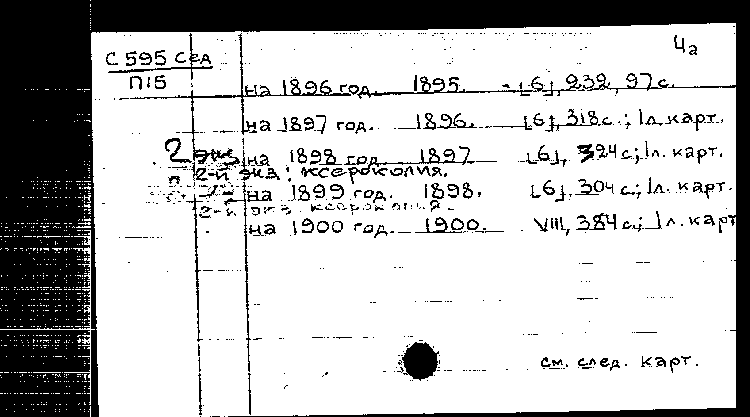 4а
С 595 Сед
П15
на 1896 год. 1895. - [6], 232, 97 с.
на 1897 год. 1896. [6], 318 с.; 1 л. карт.
2 экз на 1898 год 1897 [6], 324 с.; 1 л. карт.
2-й экз! ксерокопия.
на 1899 год. 1898. [6], 304 с.; 1 л. карт.
2-й экз ксерокопия.
на 1900 год. 1900. VIII, 384 с.; 1 л. карт
см. след. карт.